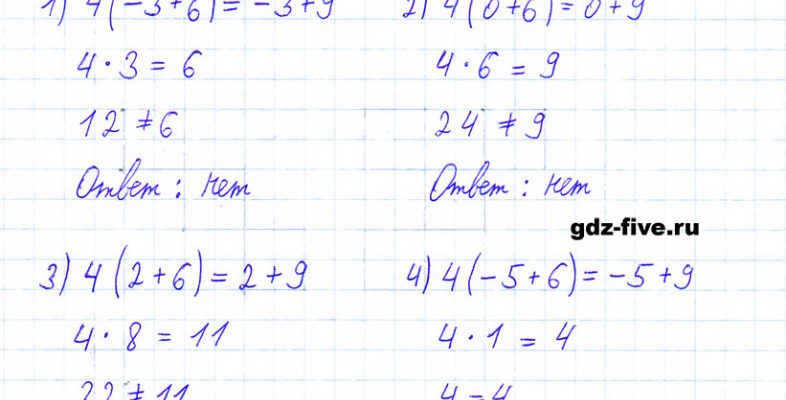 1) 4(-3+6)=-3+9
4·3=6
12≠6
Ответ: нет
2) 4(0+6)=0+9
4·6=9
24≠9
Ответ: нет
gdz-five.ru
3) 4(2+6)=2+9
4·8=11
4) 4(-5+6)=-5+9
4·1=4
4=4